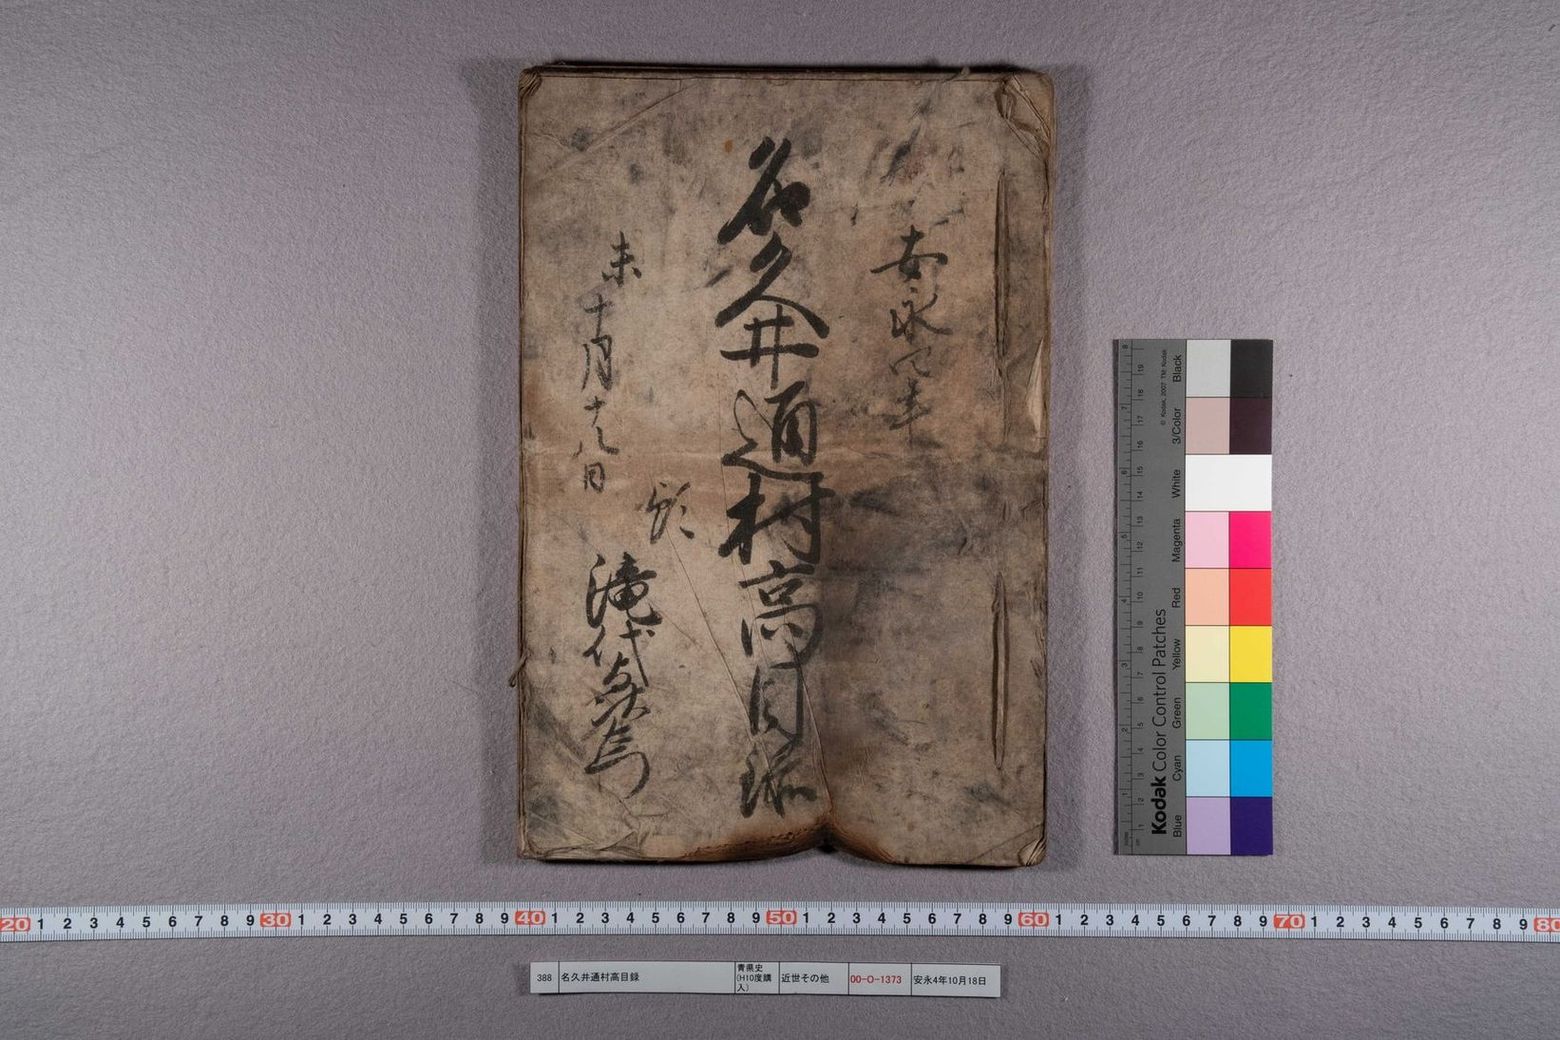 安永四年
名久井通村高目録
未十月十八日
滝代
Kodak Color Control Patches
© Kodak, 2007 TM: Kodak
Blue Cyan Green Yellow Red Magenta White 3/Color Black
20 1 2 3 4 5 6 7 8 9 30 1 2 3 4 5 6 7 8 9 40 1 2 3 4 5 6 7 8 9 50 1 2 3 4 5 6 7 8 9 60 1 2 3 4 5 6 7 8 9 70 1 2 3 4 5 6 7 8 9 80
388 名久井通村高目録 青県史(H10度購入) 近世その他 00-O-1373 安永4年10月18日